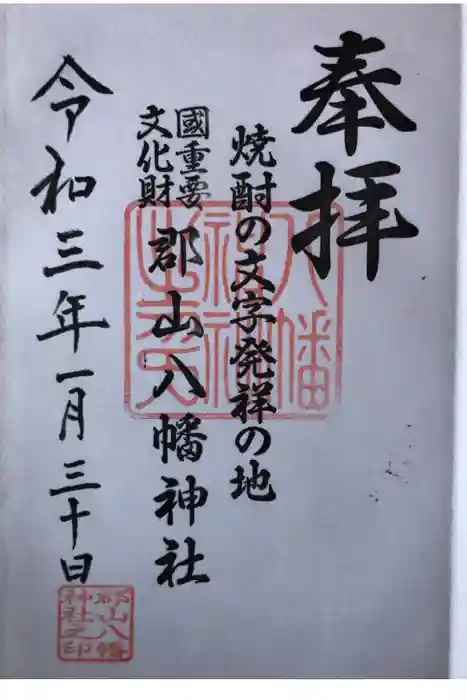 奉拝
焼酎の文字発祥の地
國重要
文化財
郡山八幡神社
令和三年一月三十日
八幡
神社
郡山八幡
神社之印